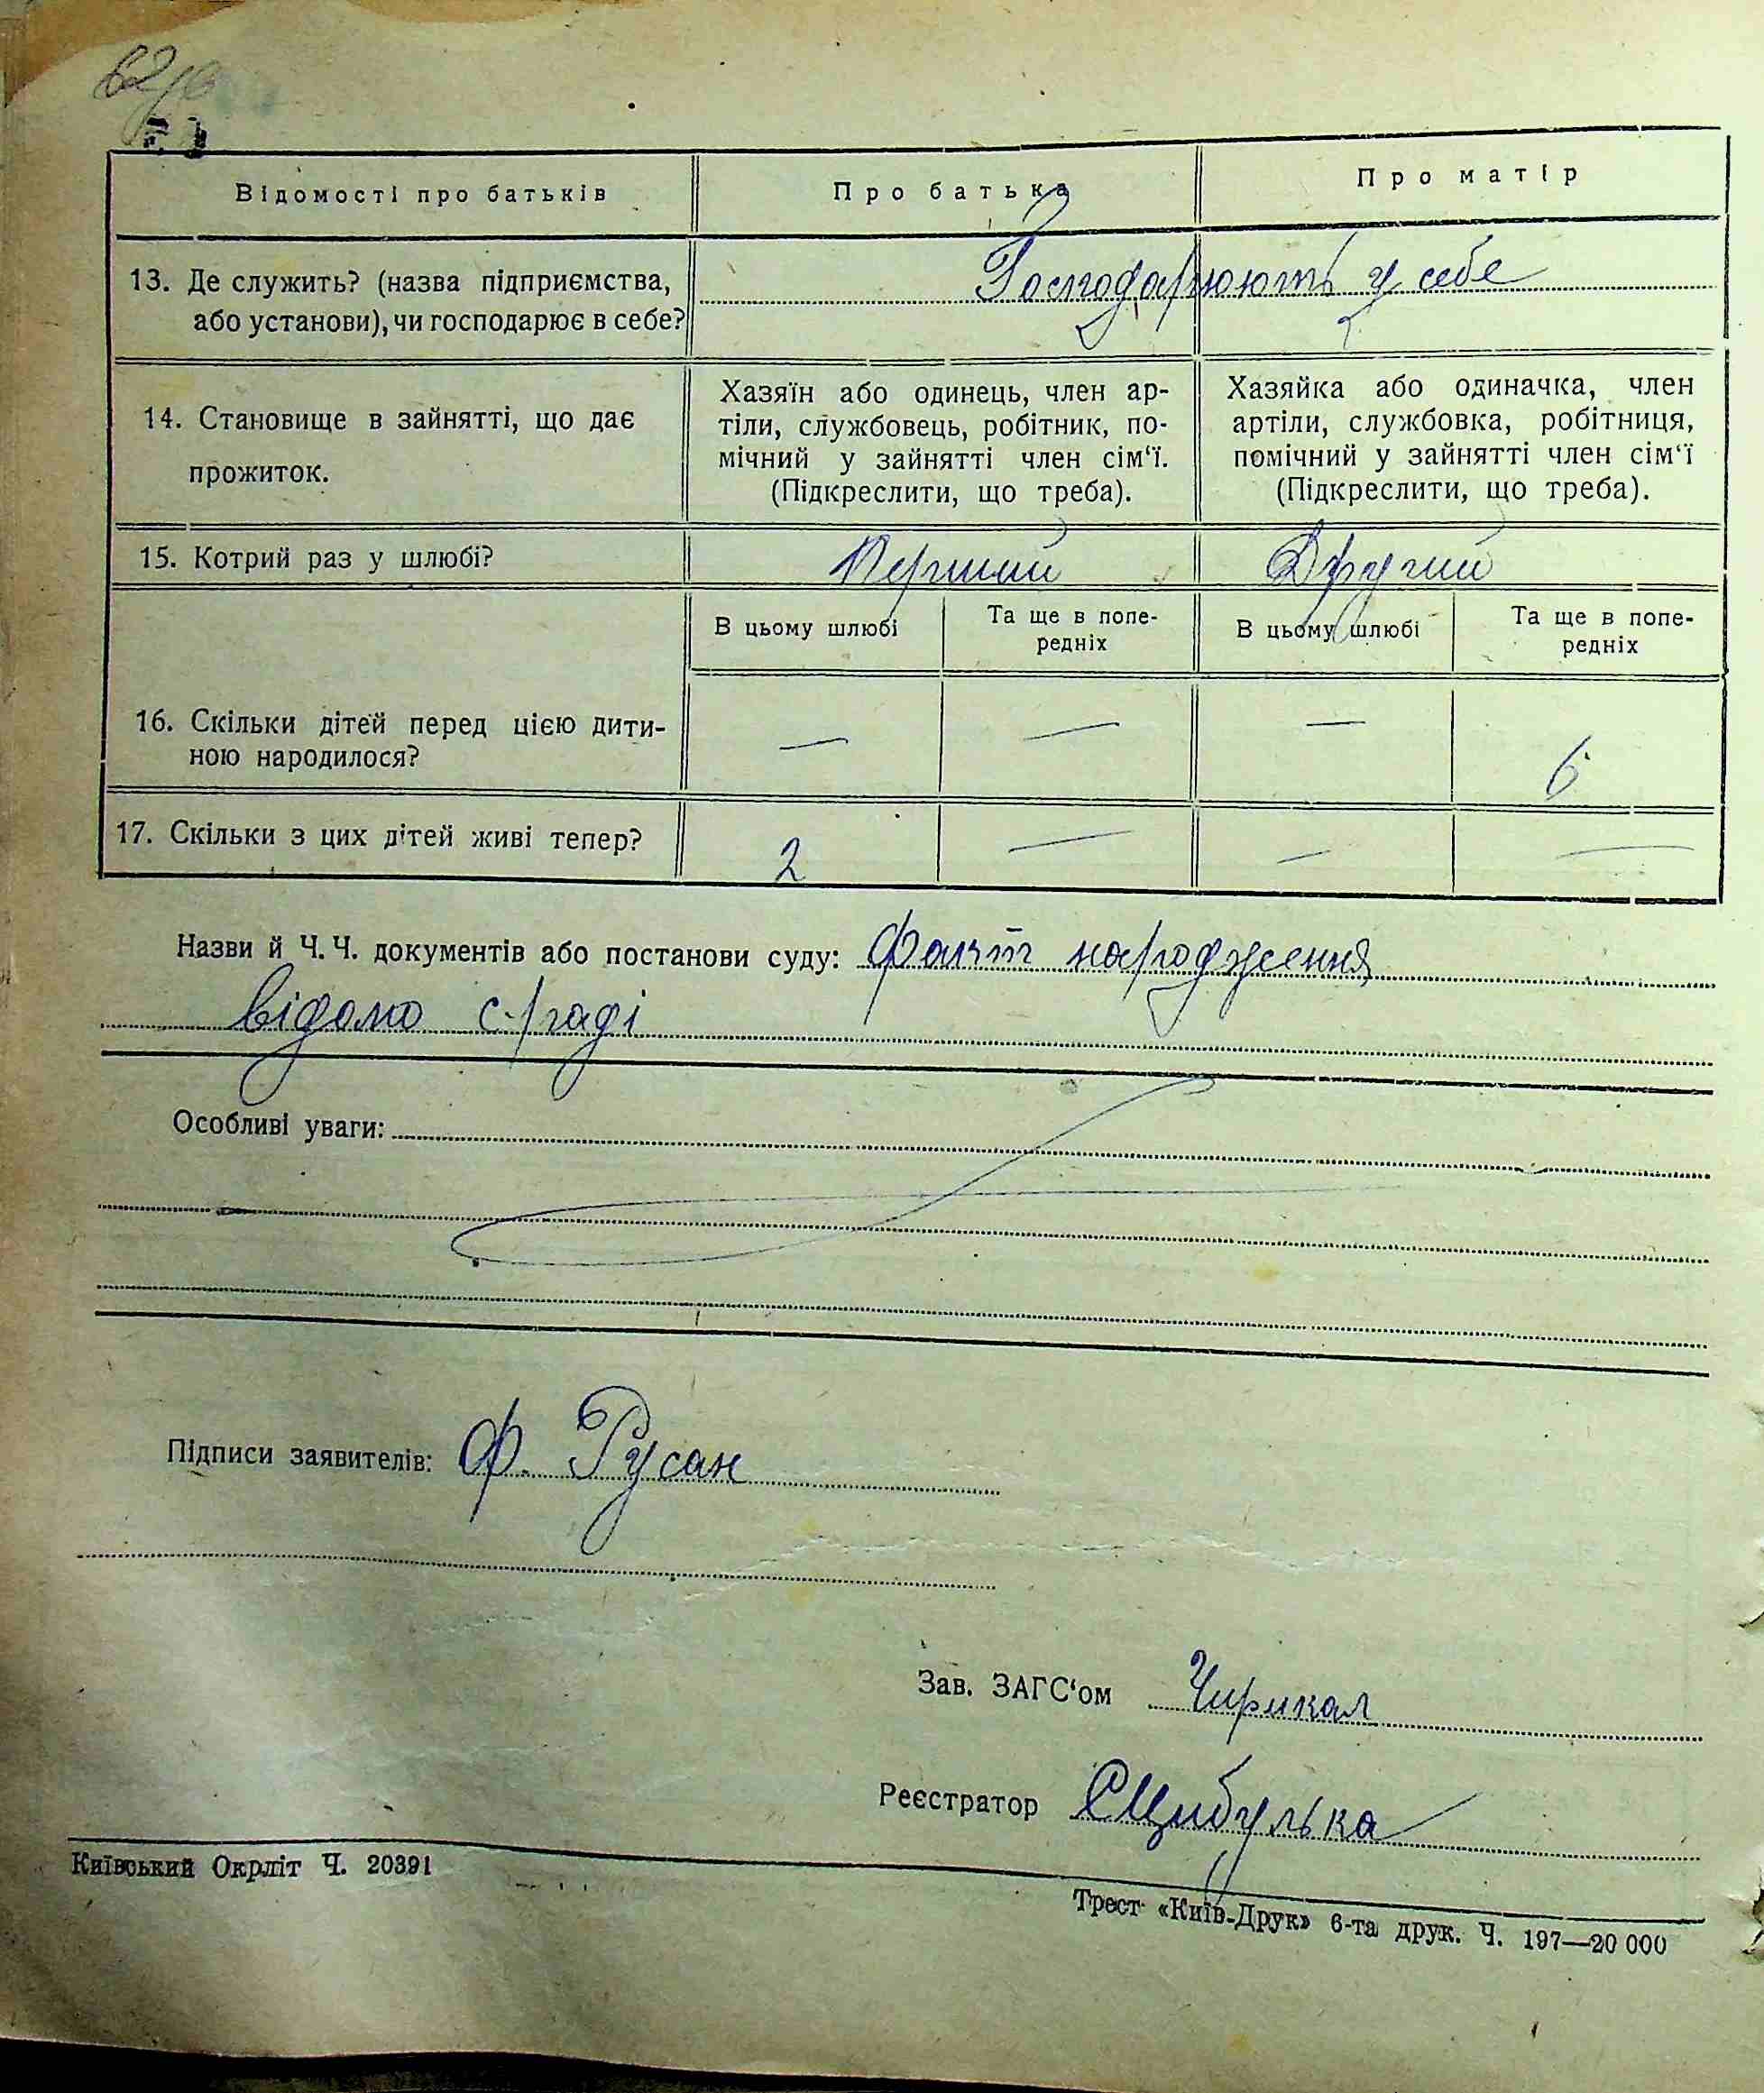 Відомості про батьків
Про батька
Про матір
13. Де служить? (назва підприємства,
або установи), чи господарює в себе?
Господарюють у себе
14. Становище в зайнятті, що дає
прожиток.
Хазяїн або одинець, член ар-
тіли, службовець, робітник, по-
мічний у зайнятті член сім‘ї.
(Підкреслити, що треба).
Хазяйка або одиначка, член
артіли, службовка, робітниця,
помічний у зайнятті член сім‘ї
(Підкреслити, що треба).
15. Котрий раз у шлюбі?
Перший
Другий
В цьому шлюбі
Та ще в попе-
редніх
В цьому шлюбі
Та ще в попе-
редніх
16. Скільки дітей перед цією дити-
ною народилося?
— — — 6
17. Скільки з цих дітей живі тепер?
2 — — —
Назви й Ч. Ч. документів або постанови суду: Факт народження
відомо с/раді
Особливі уваги:
Підписи заявителів: Ф. Русан
Зав. ЗАГС‘ом Чирикал
Реєстратор Цибулька
Київський Окрліт Ч. 20391
Трест «Київ-Друк» 6-та друк. Ч. 197—20 000